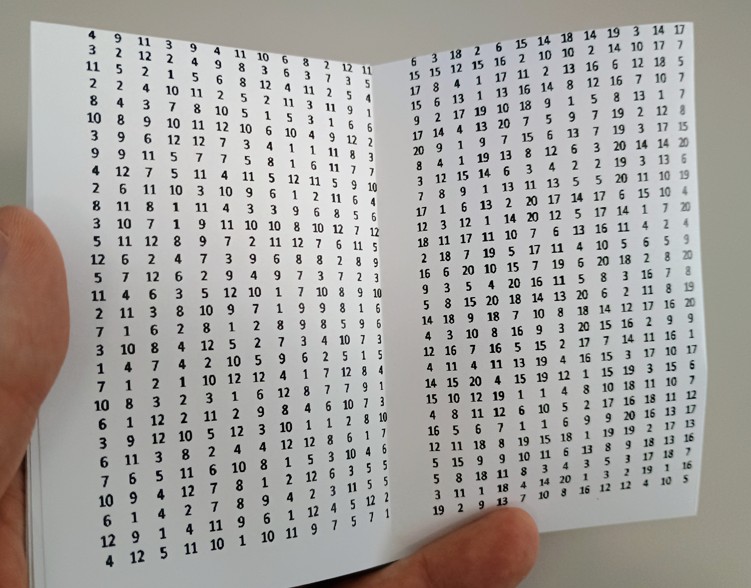 4 9 11 3 9 4 11 10 6 8 2 12 11
3 2 12 2 4 9 8 3 6 3 7 3 5
11 5 2 1 5 6 8 12 4 11 2 5 4
2 2 4 10 11 2 5 2 11 3 11 9 1
8 4 3 7 8 10 5 1 5 3 1 6 6
10 8 9 10 11 12 10 6 10 4 9 12 2
3 9 6 12 12 7 3 4 1 1 11 8 3
9 9 11 5 7 7 5 8 1 6 11 7 7
4 12 7 5 11 4 11 5 12 11 5 9 10
2 6 11 10 3 10 9 6 1 2 11 6 4
8 11 8 1 11 4 3 3 9 6 8 5 6
3 10 7 1 9 11 10 10 8 10 12 7 12
5 11 12 8 9 7 2 11 12 7 6 11 5
12 6 2 4 7 3 9 6 8 8 2 8 9
5 7 12 6 2 9 4 9 7 3 7 2 3
11 4 6 3 5 12 10 1 7 10 8 9 10
2 11 3 8 10 9 7 1 9 9 8 1 6
7 1 6 2 8 1 2 8 9 8 5 9 6
3 10 8 4 12 5 2 7 3 4 10 7 3
1 4 7 4 2 10 5 9 6 2 5 1 5
7 1 2 1 10 12 12 4 1 7 12 8 4
10 8 3 2 3 1 6 12 8 7 7 9 1
6 1 12 2 11 2 9 8 4 6 10 7 3
3 9 12 10 5 12 3 10 1 1 2 8 10
6 11 3 8 2 4 4 12 12 8 6 1 7
7 6 5 11 6 10 8 1 5 3 10 4 6
10 9 4 12 7 8 1 2 12 6 3 5 5
6 1 4 2 7 8 9 4 2 3 11 5 5
12 9 1 4 11 9 6 1 12 4 5 12 2
4 12 5 11 10 1 10 11 9 7 5 7 1
6 3 18 2 6 15 14 18 14 19 3 14 17
15 15 12 15 16 2 10 10 2 14 10 17 7
17 8 4 1 17 11 2 13 16 6 12 18 5
15 6 13 1 13 16 14 8 12 16 7 10 7
9 2 17 19 10 18 9 1 5 8 13 1 7
17 14 4 13 20 7 5 9 7 19 2 12 8
20 9 1 9 7 15 6 13 7 19 3 17 15
8 4 1 19 13 8 12 6 3 20 14 14 20
3 12 15 14 6 3 4 2 2 19 3 13 6
7 8 9 1 13 11 13 5 5 20 11 10 19
17 1 6 13 2 20 17 14 17 6 15 10 4
12 3 12 1 14 20 12 5 17 14 1 7 20
18 11 17 11 10 7 6 13 16 11 4 2 4
2 18 7 19 5 17 11 4 10 5 6 5 9
16 6 20 10 15 7 19 6 20 18 2 8 20
9 3 5 4 20 16 11 5 8 3 16 7 8
5 8 15 20 18 14 13 20 6 2 11 8 19
14 18 9 18 7 10 8 18 14 12 17 16 20
4 3 10 8 16 9 3 20 15 16 2 9 9
12 16 7 16 5 15 2 17 7 14 11 16 1
4 11 4 11 13 19 4 16 15 3 17 10 17
14 15 20 4 15 19 12 1 15 19 3 15 6
15 10 12 19 1 1 4 8 10 18 11 10 7
4 8 11 12 6 10 5 2 17 16 18 11 12
16 5 6 7 1 1 6 9 9 20 16 13 17
12 11 18 8 19 15 18 1 19 19 2 17 13
5 15 9 9 10 11 6 13 8 9 18 13 16
5 8 18 11 8 3 4 3 5 3 17 18 7
3 11 1 18 4 14 20 1 3 2 19 1 16
19 2 9 13 7 10 8 16 12 12 4 10 5